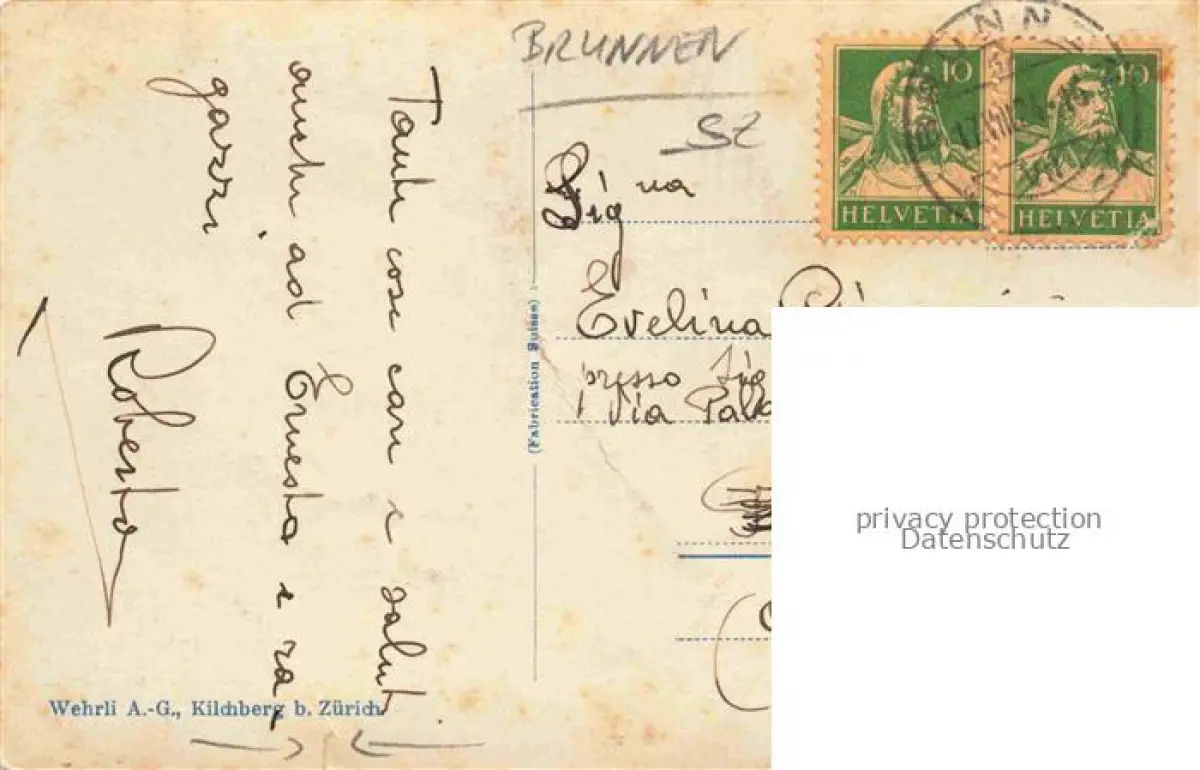 BRUNNEN
SZ
10
10
HELVETIA
HELVETIA
BRUNNEN
Tante cose care e saluti
anche ad Ernesta e ra-
gazzi
Roberto
Sig na
Evelina
presso Sig
Via
(Fabrication Suisse)
Wehrli A.-G., Kilchberg b. Zürich.
privacy protection
Datenschutz